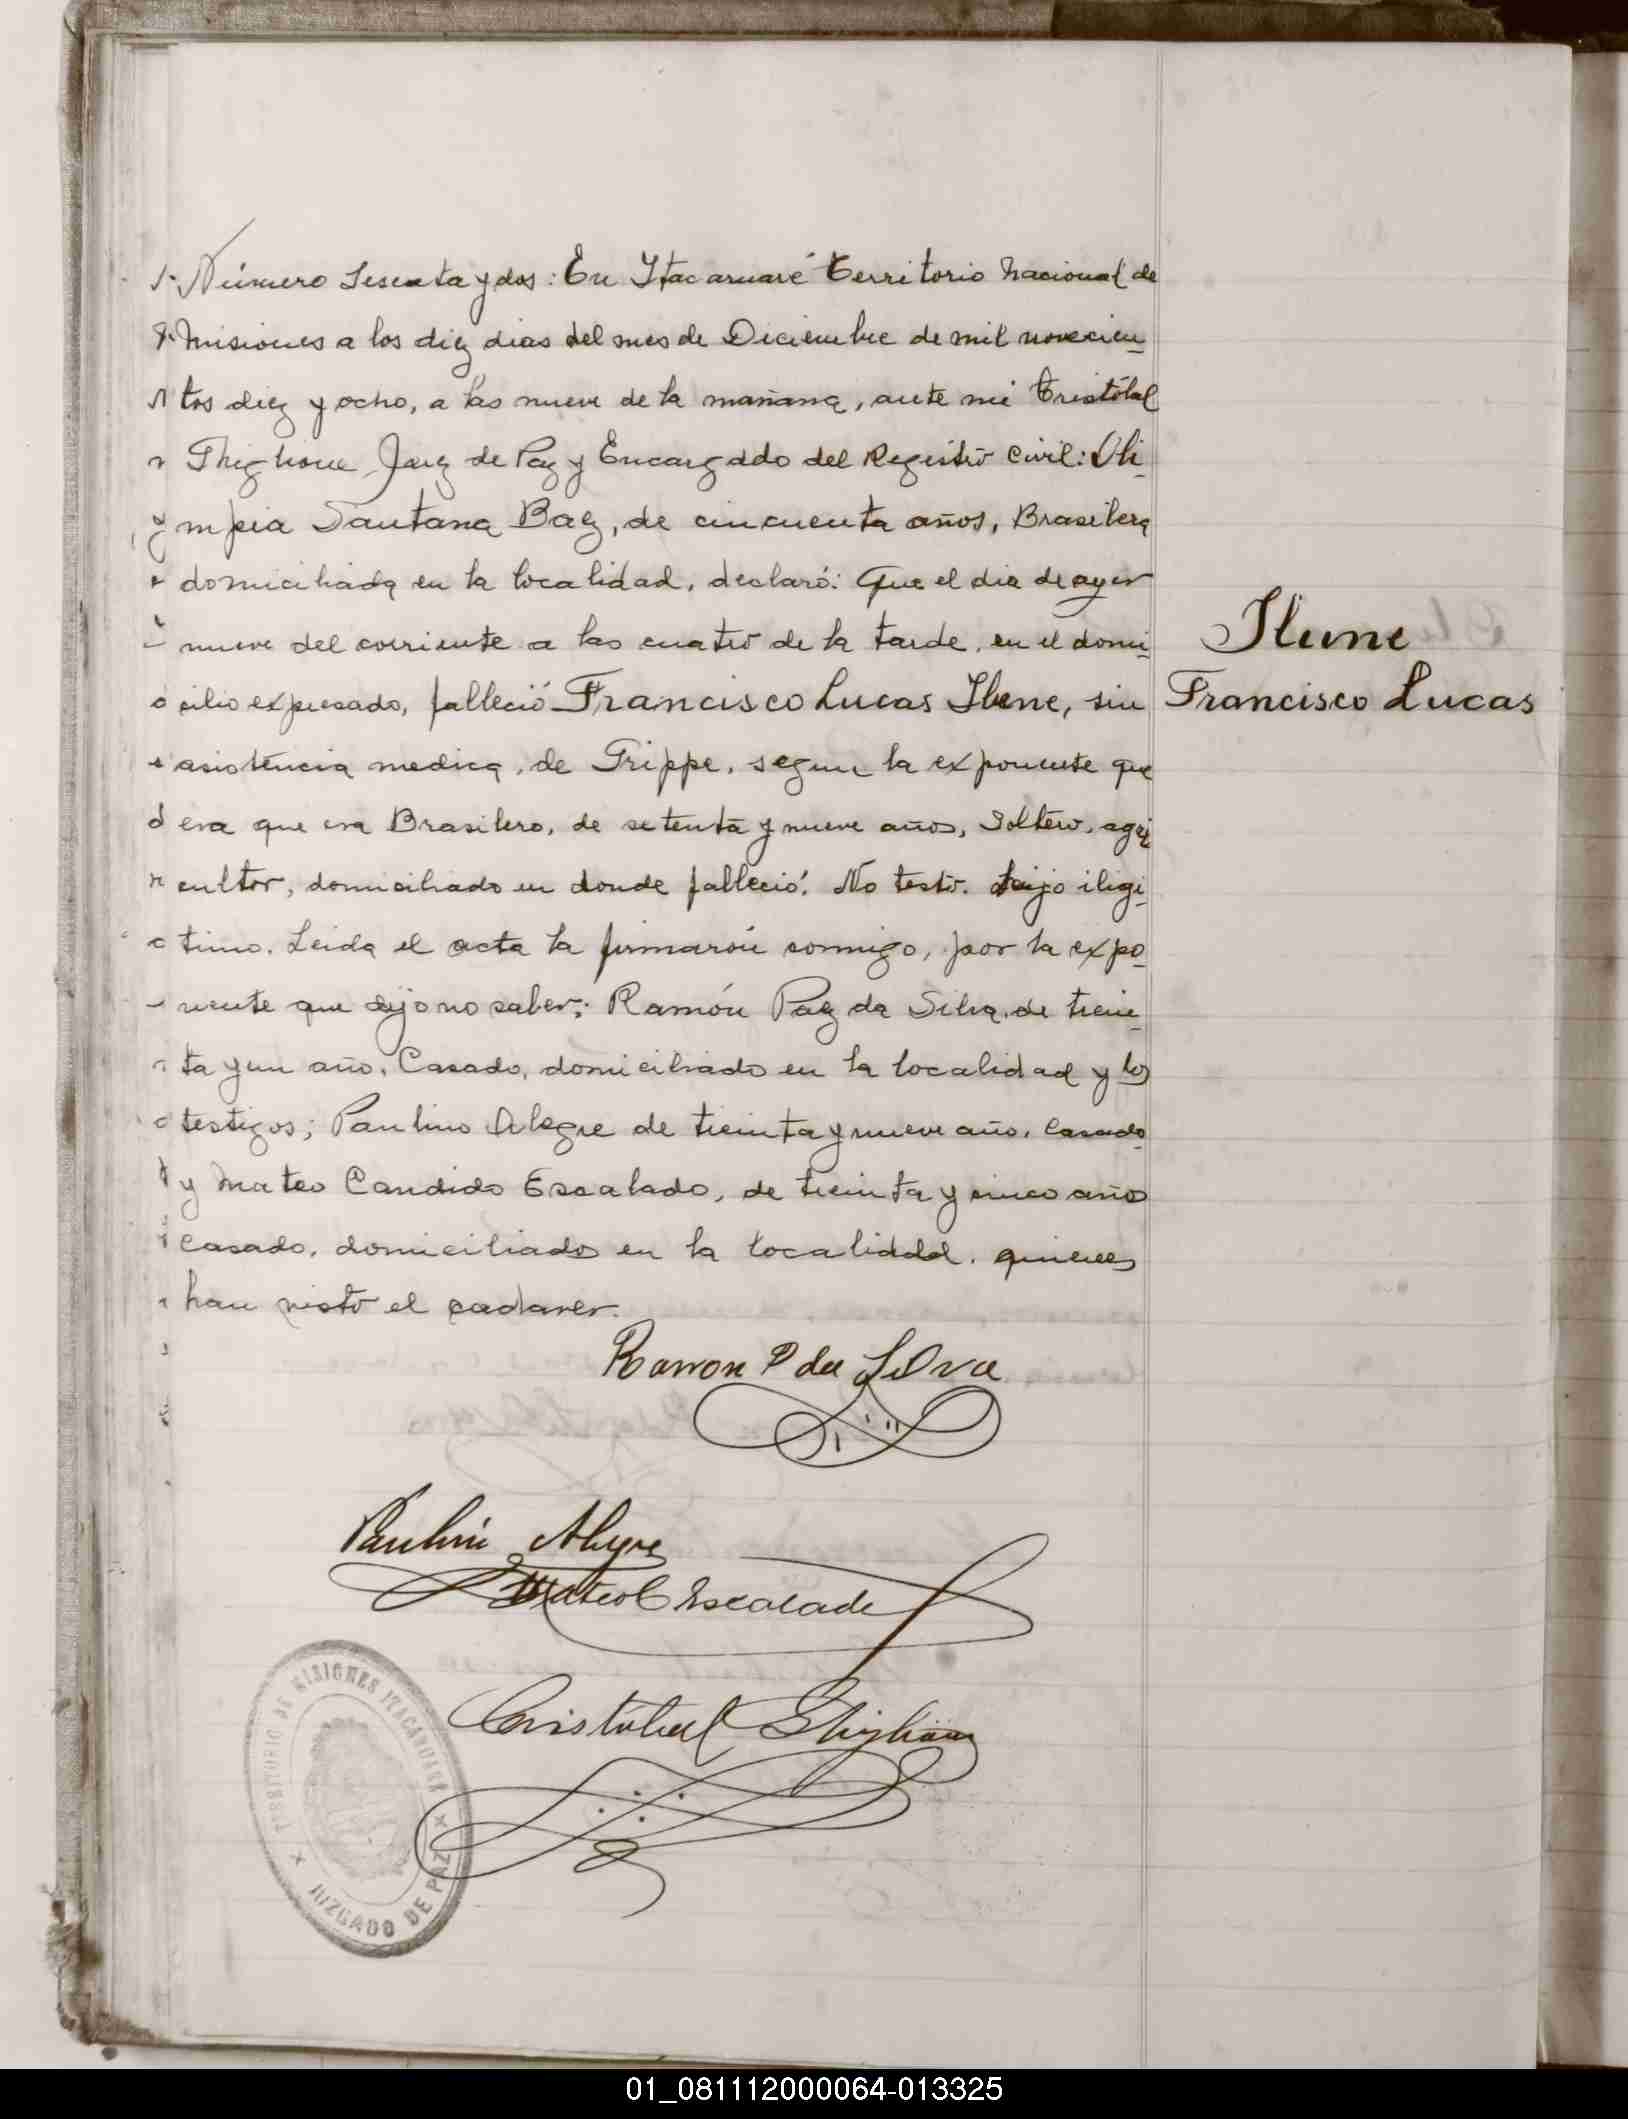 Número Sesenta y dos: En Itacaruaré Territorio Nacional de
Misiones a los diez dias del mes de Diciembre de mil novecien_
tos diez y ocho, a las nueve de la mañana, ante mi Cristóbal
Ghiglione Juez de Paz y Encargado del Registro Civil: Oli_
mpia Santana Baez, de cincuenta años, Brasilera
domiciliada en la localidad, declaró: Que el dia de ayer
nueve del corriente a las cuatro de la tarde, en el domi_
cilio expresado, falleció Francisco Lucas Ibene, sin
asistencia medica, de Grippe, segun la exponente que
era que era Brasilero, de setenta y nueve años, Soltero, agri_
cultor, domiciliado en donde falleció. No testó. Hijo iligi_
timo. Leida el acta la firmarón conmigo, por la expo_
nente que dijo no saber; Ramón Paz da Silva, de trein_
ta y un año, Casado, domiciliado en la localidad y los
testigos; Paulino Alegre de treinta y nueve año, Casado
y Mateo Candido Escalado, de treinta y cinco años
Casado, domiciliados en la localidad, quienes
han visto el cadaver.
Francisco Lucas
Ramon P da Silva
Paulino Alegre
Mateo C Escalade
Cristóbal Ghiglione
TERRITORIO DE MISIONES ITACARUARE
JUZGADO DE PAZ
01_081112000064-013325